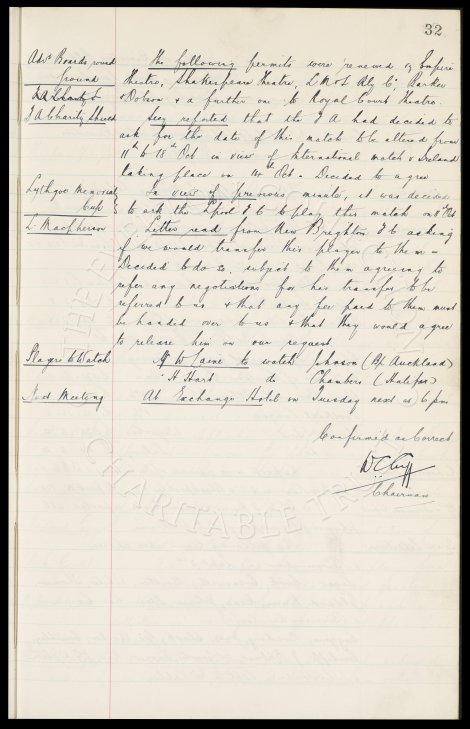 32
Advt Boards round
ground
The following permits were renewed eg Empire
Theatre, Shakespeare Theatre, L & N W Rly Co, Barker
& Dobson & a further one to Royal Court Theatre.
F A Charity Shield
Secy reported that the F A had decided to
ask for the date of this match to be altered from
11th to 18th Oct in view of International match v Ireland
taking place on 14th Oct - Decided to agree
Lythgoe Memorial
Cup
In view of previous minute, it was decided
to ask the L'pool F C to play this match on Oct
L. MacPherson
Letter read from New Brighton F C asking
if we would transfer this player to them -
Decided to do so, subject to them agreeing to
refer any negotiations for his transfer to be
referred to us & that any fee paid to them must
be handed over to us & that they would agree
to release him on our request.
Players to Watch
Mr W Sawyer to watch Johnson (Bp Auckland)
" H Hart do Chambers (Halifax)
Next Meeting
At Exchange Hotel on Tuesday next at 6 pm
Confirmed as Correct
W C Cuff
Chairman
THE EV
CHARITABLE TR